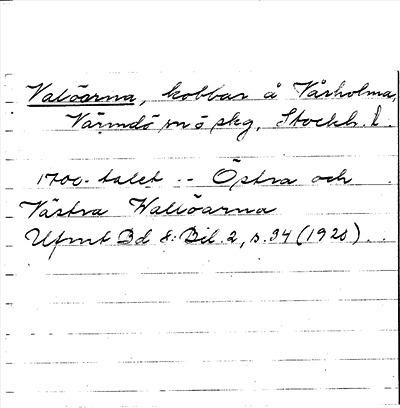 Valöarna, kobbar å Vårholma,
Värmdö sn ö skg, Stockh. l.
1700-talet -- Östra och
Västra Wallöarna
Ufmt Bd 8: Bil. 2, s. 34 (1920)